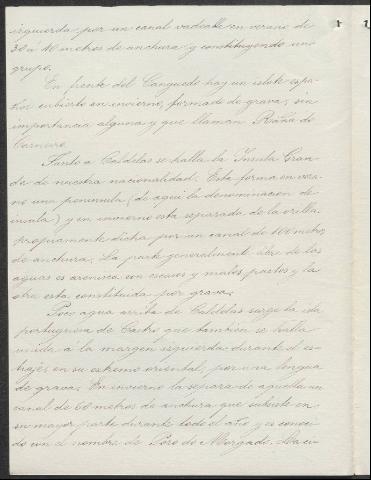 izquierda por un canal vadeable en verano de
30 a 40 metros de anchura y constituyendo un
grupo.
En frente del Canguedo hay un islote
cubierto en invierno, formado de grava, sin
importancia alguna y que llaman
Carnero.
Junto a Caldelas se halla la Insula Gran-
de de nuestra nacionalidad. Esta forma en vera-
no una peninsula (de aqui la denominacion de
insula) y en invierno esta separada de la orilla
propiamente dicha por un canal de 100 metros
de anchura. La parte generalmente libre de las
aguas es arenisca con escasos y malos pastos y la
otra esta constituida por grava.
Poco agua arriba de Caldelas surge la isla
portuguesa de Crasto que tambien se halla
unida á la margen izquierda durante el es-
tiaje en su extremo oriental, por una lengua
de grava. En invierno la separa de aquella un
canal de 60 metros de anchura que subsiste en
su mayor parte durante todo el año y es conoci-
do con el nombre de Poro do Morgado. La cu-